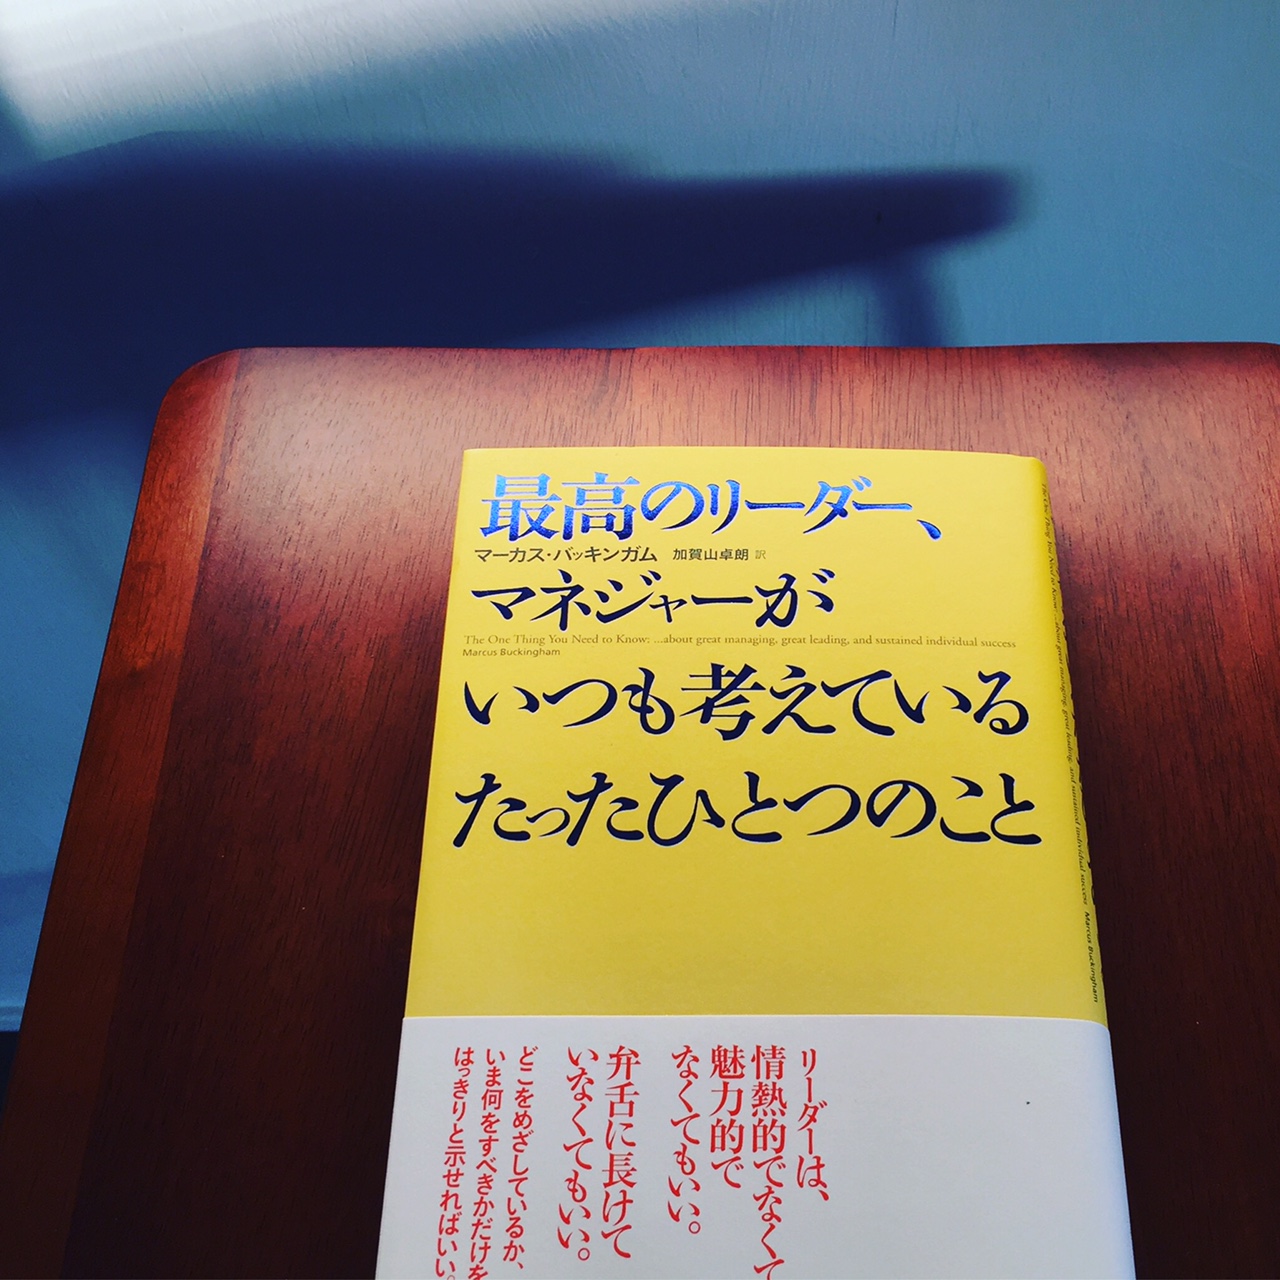 最高のリーダー、
マーカス・バッキンガム 加賀山卓朗 訳
マネジャーが
The One Thing You Need to Know: ...about great managing, great leading, and sustained individual success
Marcus Buckingham
いつも考えている
たったひとつのこと
The One Thing You Need to Know: ...about great managing, great leading, and sustained individual success Marcus Buckingham
リーダーは、
情熱的でなくて
魅力的で
なくてもいい。
弁舌に長けて
いなくてもいい。
どこをめざしているか、
いま何をすべきかだけを
はっきりと示せればいい。